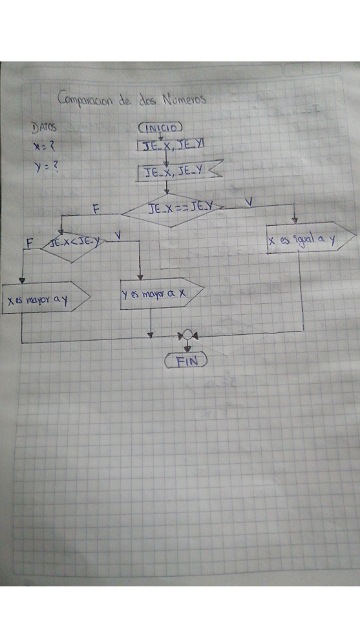 Comparacion de dos Numeros
DATOS
x = ?
y = ?
INICIO
JE_X, JE_Y
JE_X, JE_Y
JE_X == JE_Y
F
V
JE_X < JE_Y
F
V
x es igual a y
x es mayor a y
y es mayor a x
FIN